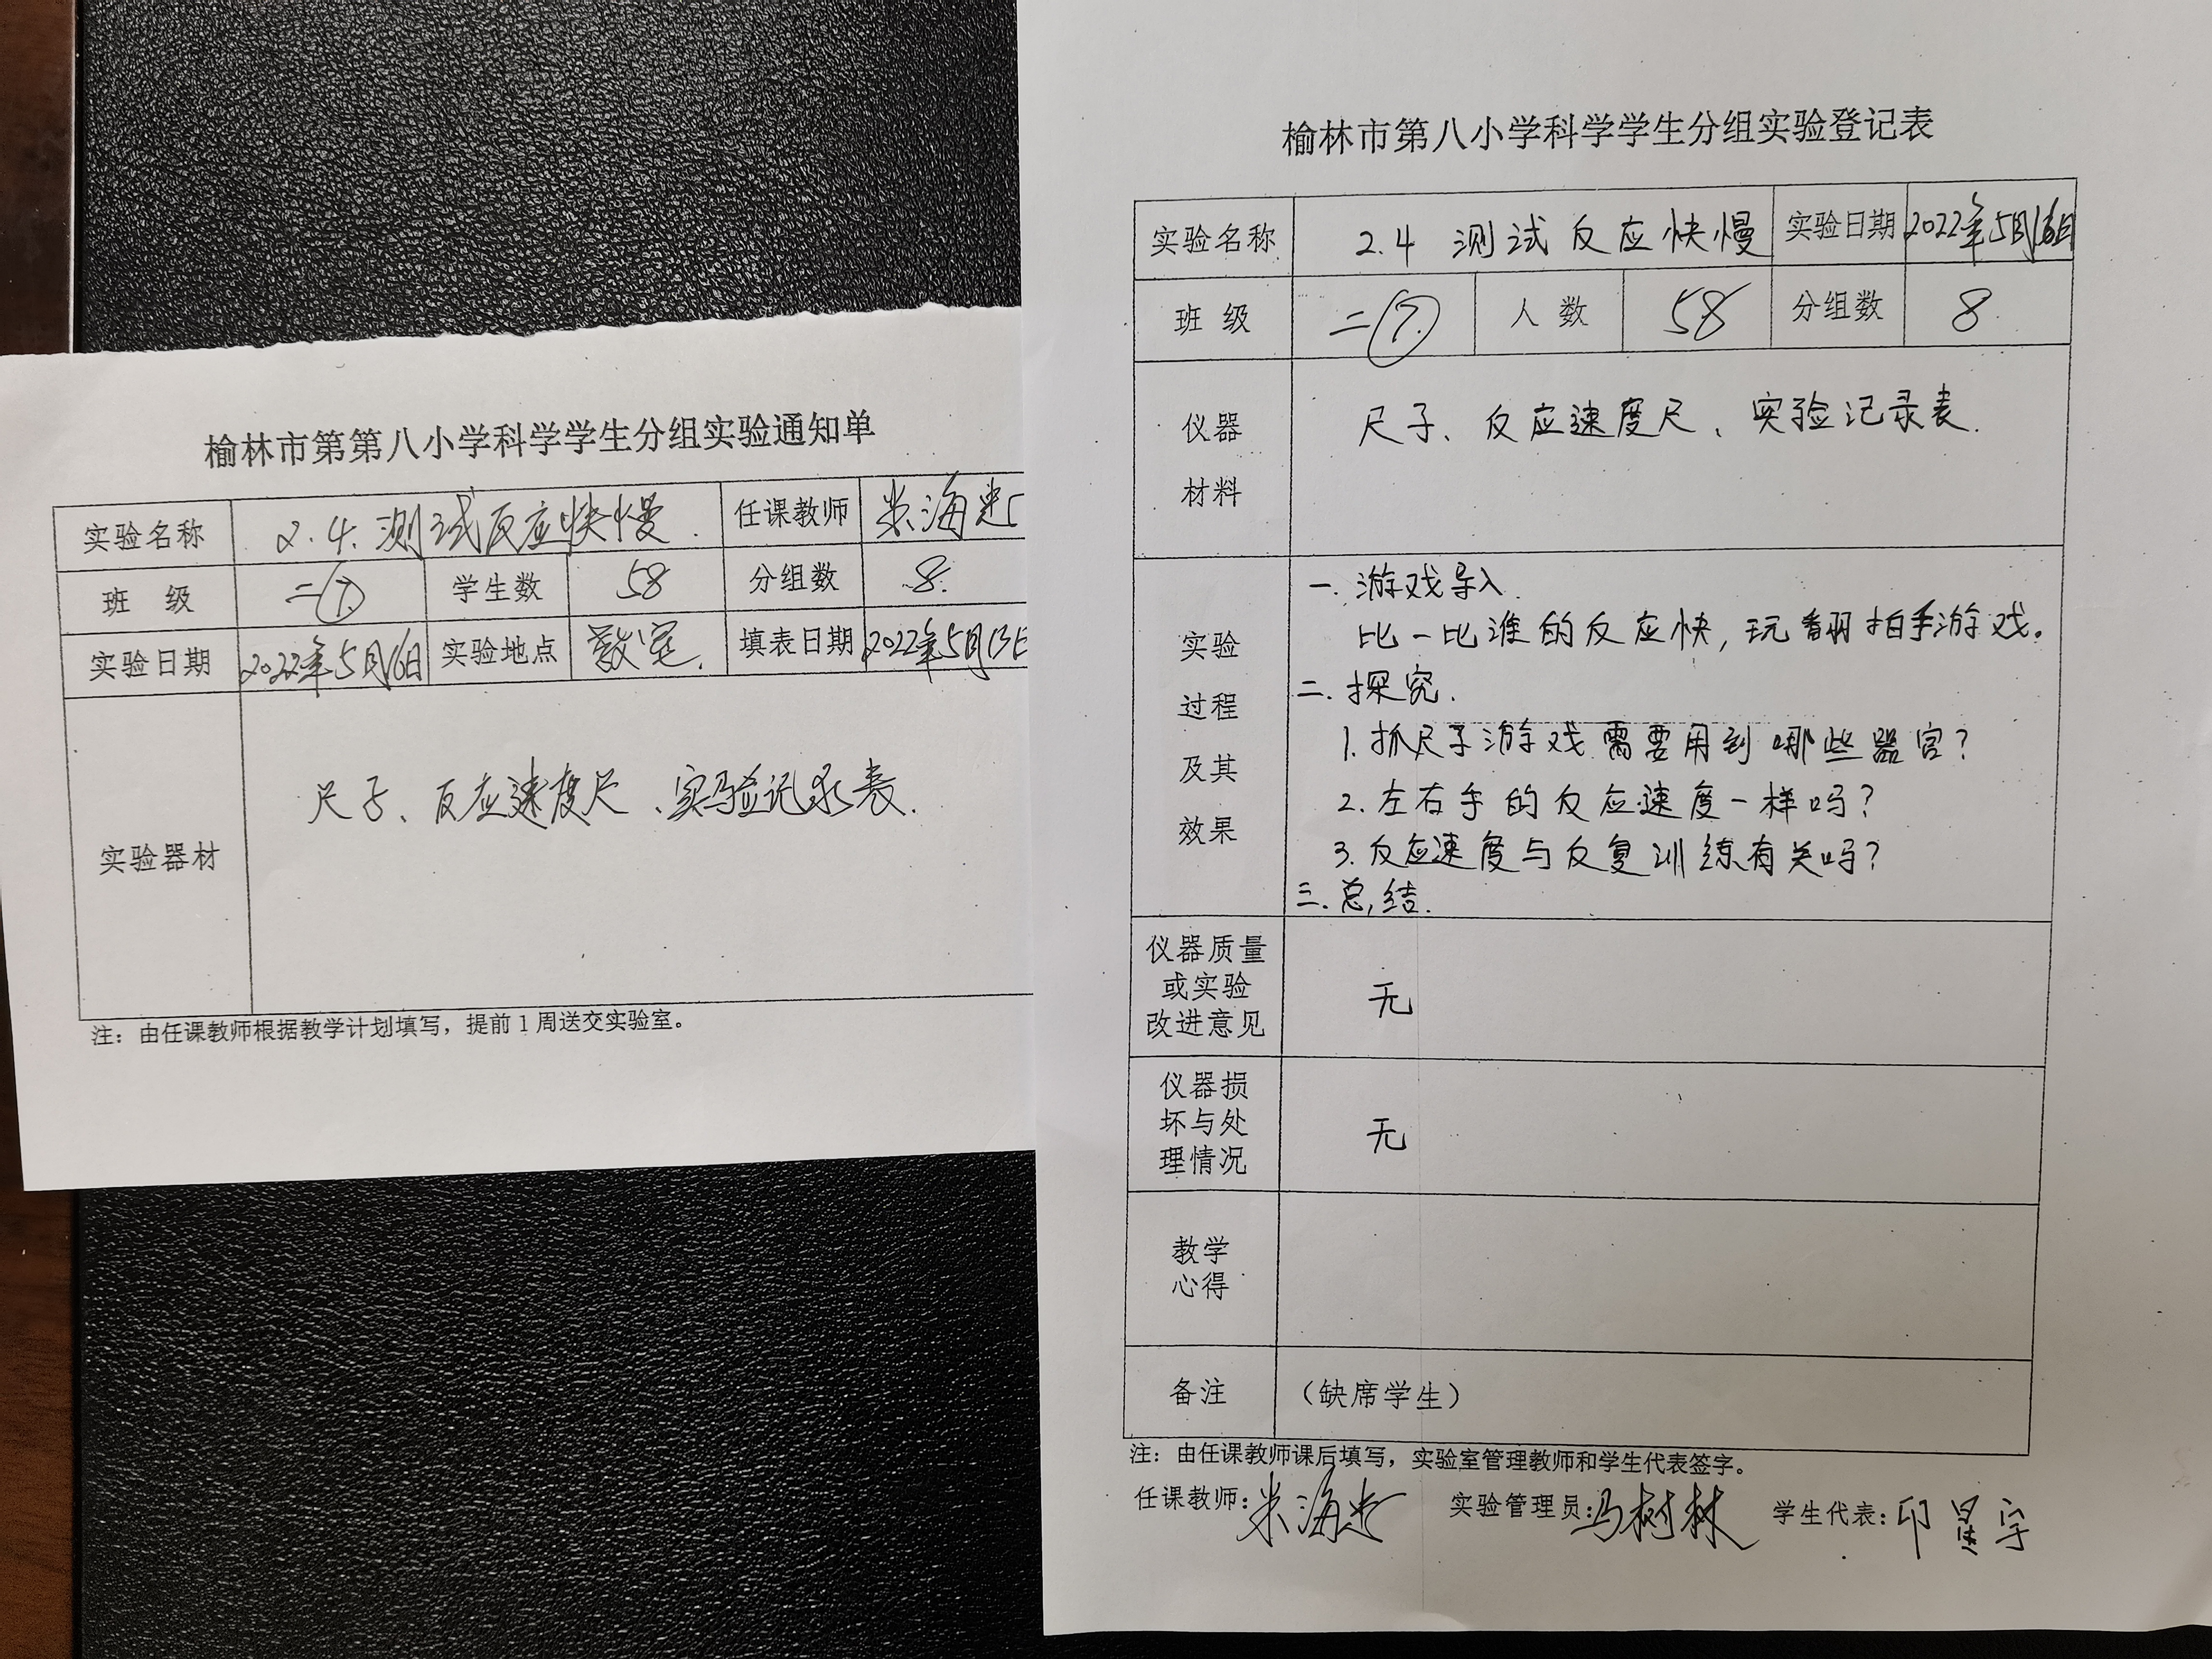 榆林市第第八小学科学学生分组实验通知单
实验名称 2.4.测试反应快慢. 任课教师 米海
班 级 二⑦ 学生数 58 分组数 8.
实验日期 2022年5月16日 实验地点 教室. 填表日期 2022年5月13日
实验器材 尺子、反应速度尺、实验记录表.
注：由任课教师根据教学计划填写，提前1周送交实验室。
榆林市第八小学科学学生分组实验登记表
实验名称 2.4 测试反应快慢 实验日期 2022年5月16日
班 级 二⑦ 人 数 58 分组数 8
仪器
材料
尺子、反应速度尺、实验记录表.
实验
过程
及其
效果
一.游戏导入.
比一比谁的反应快,玩翻拍手游戏。
二.探究.
1.抓尺子游戏需要用到哪些器官?
2.左右手的反应速度一样吗?
3.反应速度与反复训练有关吗?
三.总结.
仪器质量
或实验
改进意见
无
仪器损
坏与处
理情况
无
教学
心得
备注 （缺席学生）
注：由任课教师课后填写，实验室管理教师和学生代表签字。
任课教师：米海 实验管理员：马树林 学生代表：印昱宇